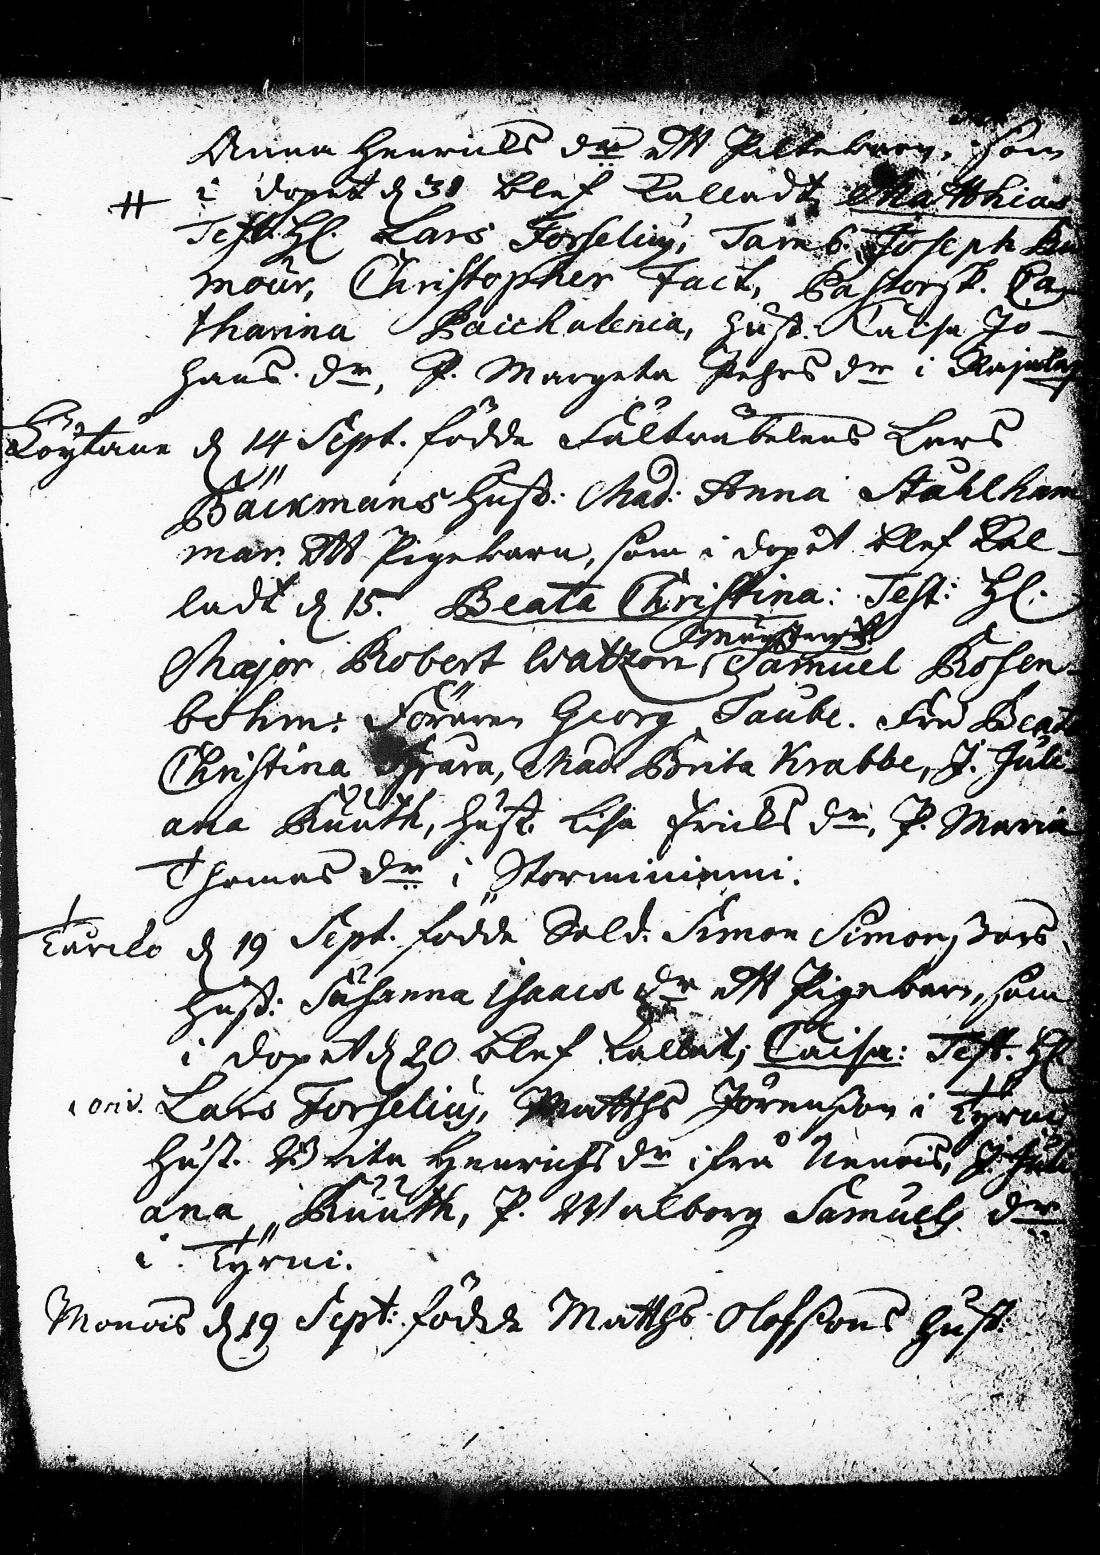 Anna Henrics dr ett Piltebarn, som
i dopet d 31 blef kalladt Matthias
Test. Hl. Lars Forselius, Tamb. Joseph
mour, Christopher Fact, Pastorsk. Ca-
tharina Paichalenia, Hust. Caisa Jo-
hans dr, P. Margeta Pehrs dr i
Löytäne d 14 Sept. födde Fältväbelens Lars
Bäckmans Hust: Mad: Anna Stahlham
mar. ett Pigebarn, som i dopet blef kal-
ladt d 15. Beata Christina: Test: Hl.
Major Robert Watzon, Samuel Rosen-
bohm: Föraren Georg Taube. Fru Beata
Christina Mad. Brita Krabbe, J. Juli-
ana Ruuth, Hust. Lisa Erics dr, P. Maria
Thomas dr i Storminiemi.
Turilo d 19 Sept. födde Sold: Simon Simonssons
Hust: Susanna Isaacs dr ett Pigebarn, som
i dopet d 20 blef kallat; Caisa: Test. Hl.
Lars Forselius, Matths Jörensson i Tyrni
Hust. Brita Henrichs dr ifrå Nenois, J. Juli
ana Ruuth, P. Walborg Samuels dr
i Tyrni.
Monois d 19 Sept: födde Matths Olofssons Hust: